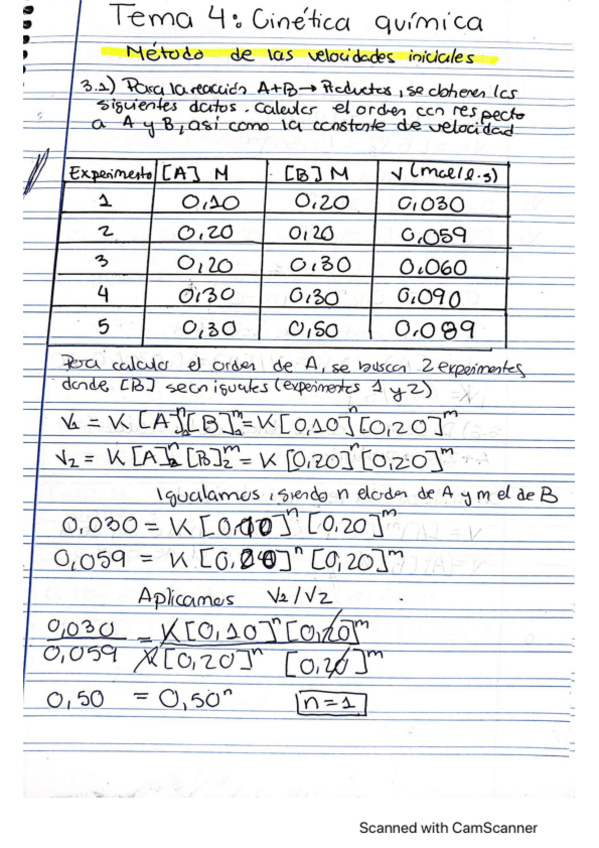 Tema 4: Cinética química
Método de las velocidades iniciales
3.1) Para la reacción A+B → Productos, se obtienen los
siguientes datos. Calcular el orden con respecto
a A y B, así como la constante de velocidad
Experimento [A] M [B] M V (mol/l·s)
1 0,10 0,20 0,030
2 0,20 0,20 0,059
3 0,20 0,30 0,060
4 0,30 0,30 0,090
5 0,30 0,50 0,089
Para calcular el orden de A, se buscan 2 experimentos
donde [B] sean iguales (experimentos 1 y 2)
V₁ = K [A]₁ⁿ [B]₁ᵐ = K [0,10]ⁿ [0,20]ᵐ
V₂ = K [A]₂ⁿ [B]₂ᵐ = K [0,20]ⁿ [0,20]ᵐ
Igualamos, siendo n el orden de A y m el de B
0,030 = K [0,10]ⁿ [0,20]ᵐ
0,059 = K [0,20]ⁿ [0,20]ᵐ
Aplicamos V₂/V₂
0,030 = K [0,10]ⁿ [0,20]ᵐ
0,059 K [0,20]ⁿ [0,20]ᵐ
0,50 = 0,50ⁿ n=1
Scanned with CamScanner